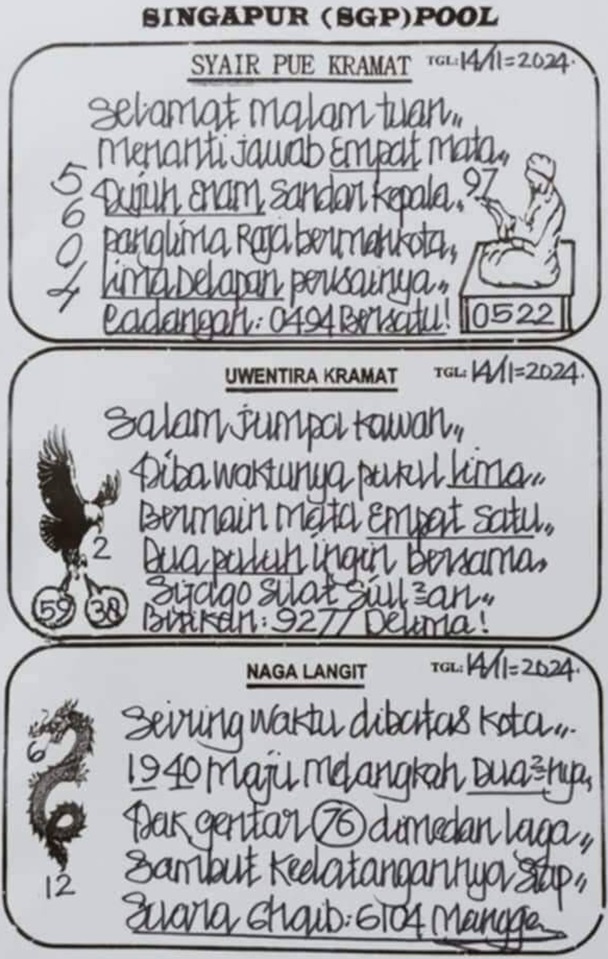 SINGAPUR (SGP) POOL
SYAIR PUE KRAMAT TGL: 14/11=2024.
Selamat malam tuan,,
Menanti jawab empat mata,,
5 6 0 4
Tujuh enam sandar kepala,, 97
panglima Raja bermahkota,,
lima Delapan perisainya,,
Cadangan: 0494 Bersatu!
0522
UWENTIRA KRAMAT TGL: 14/11=2024.
Salam jumpa kawan,,
Tiba waktunya pukul lima,,
Bermain mata empat satu,,
Dua puluh ingin bersama,
2
Sijago silat siul²an,,
59 38
Bisikan: 9277 Delima!
NAGA LANGIT TGL: 14/11=2024.
Seiring waktu dibatas kota,,.
6
1940 maju melangkah Dua²nya,
Tak gentar 76 dimedan laga,,
Sambut Kedatangannya siap,,
12
Suara Ghaib: 6104 Mangga